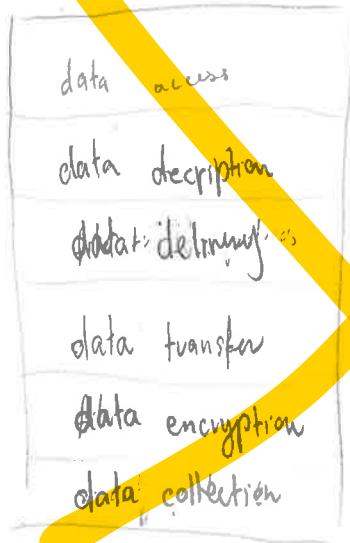 data access
data decription
data delivery
data transfer
data encryption
data collection